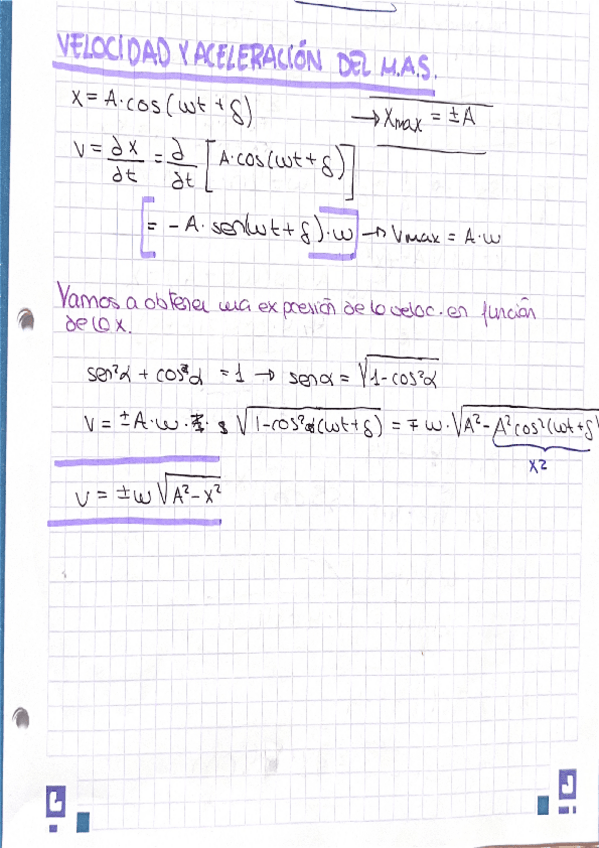 VELOCIDAD Y ACELERACIÓN DEL M.A.S.
x = A·cos(ωt + δ) → Xmax = ±A
v = ∂x/∂t = ∂/∂t [A·cos(ωt + δ)]
= -A·sen(ωt + δ)·ω → Vmax = A·ω
Vamos a obtener una expresión de la veloc. en función
de la x.
sen²α + cos²α = 1 → senα = √(1-cos²α)
v = ±A·ω· √(1-cos²(ωt+δ)) = ∓ω·√(A²-A²cos²(ωt+δ)
x²
v = ±ω√(A²-x²)